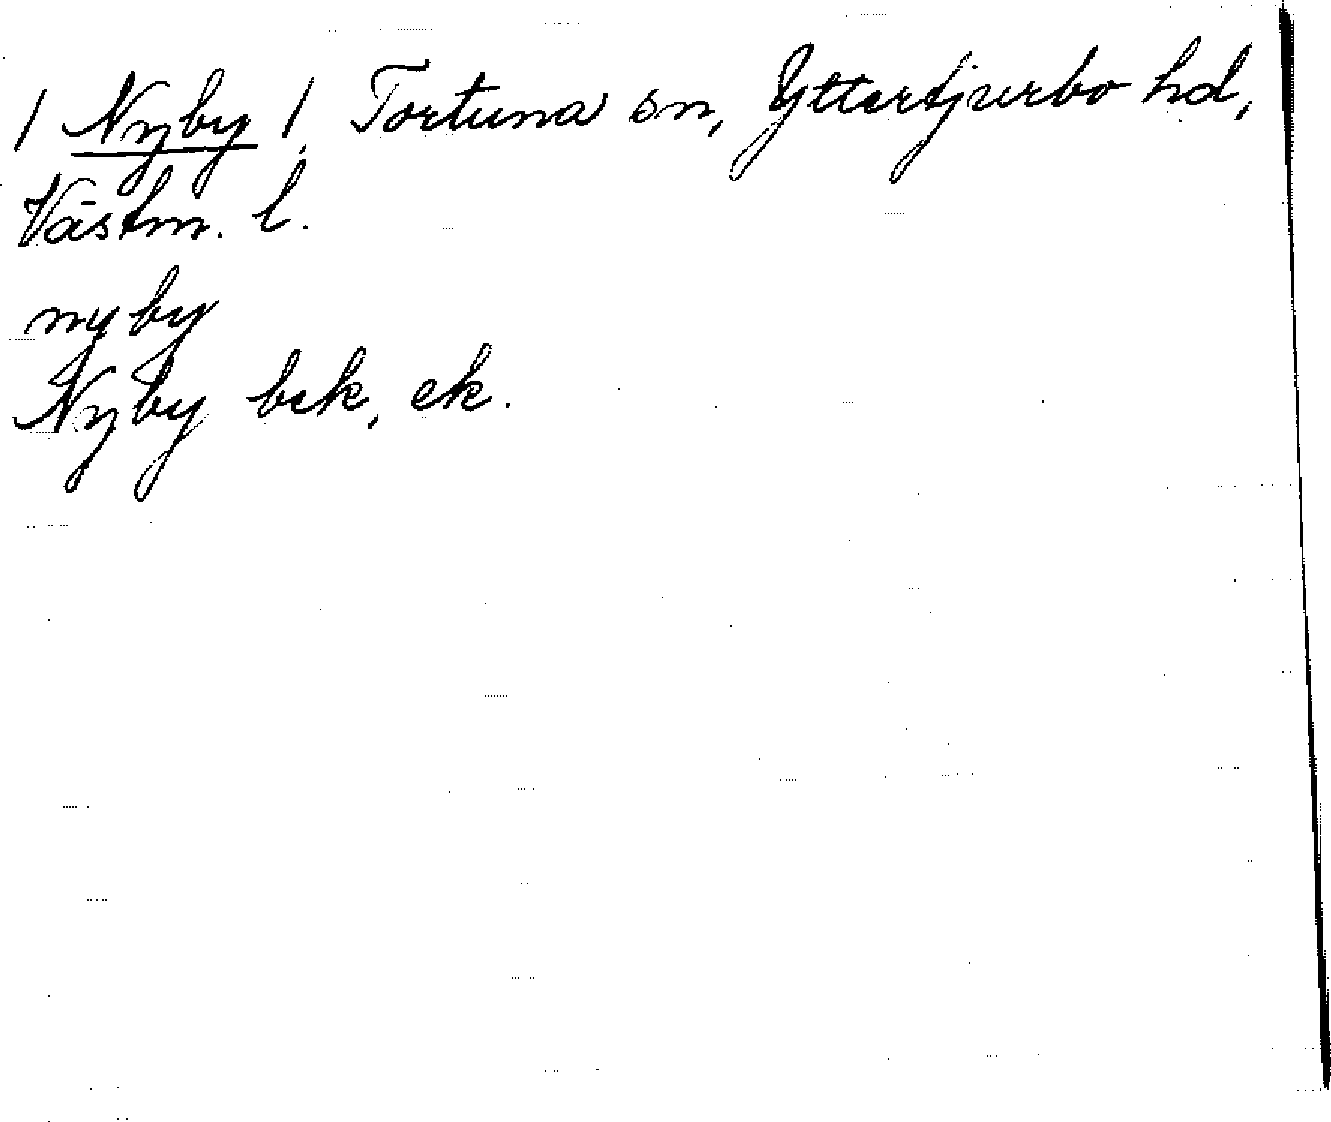 / Nyby /, Tortuna sn, Yttertjurbo hd,
Västm. l.
nyby
Nyby bek, ek.